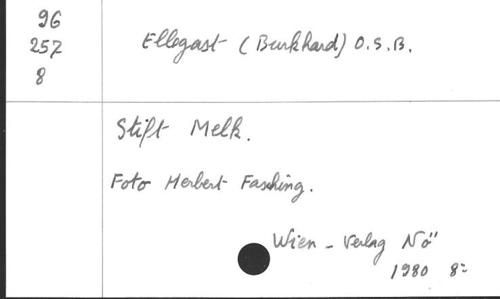 96
257
8
Ellegast (Burkhard) O.S.B.
Stift Melk.
Foto Herbert Fasching.
Wien - Verlag Nö"
1980 8: